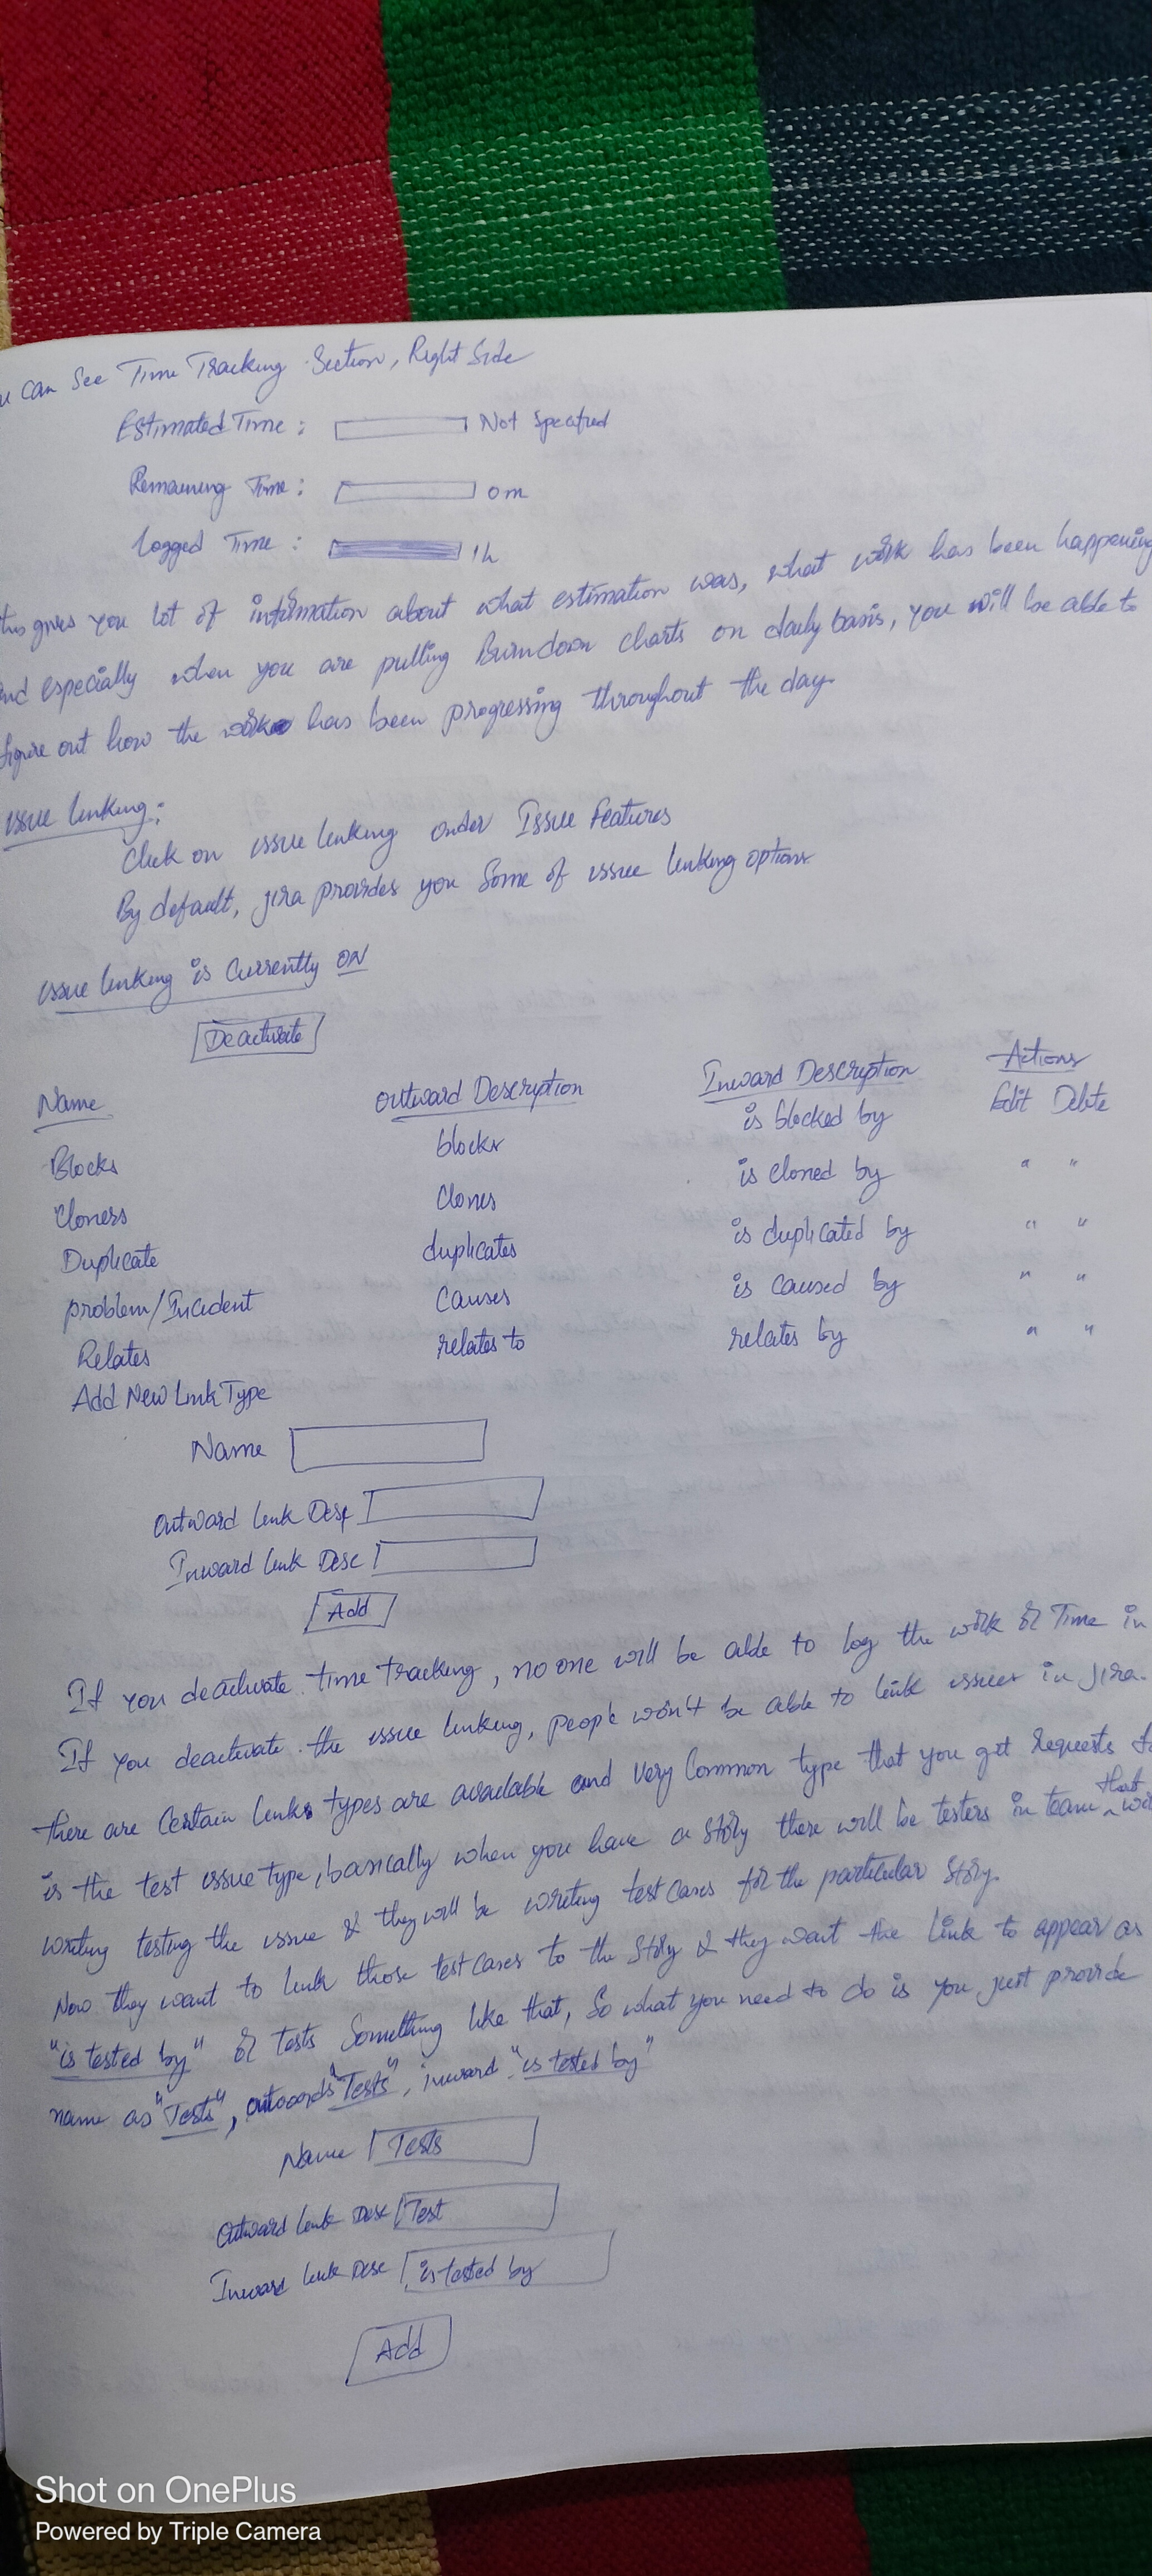 u can see Time Tracking Section, Right Side
Estimated Time : Not Specified
Remaining Time : 0m
Logged Time : 1h
this gives you lot of information about what estimation was, what work has been happening
and especially when you are pulling Burndown charts on daily basis, you will be able to
figure out how the work has been progressing throughout the day.
issue linking:
Click on issue linking under Issue Features
By default, jira provides you some of issue linking options
issue linking is currently ON
Deactivate
Name Outward Description Inward Description Actions
Blocks blocks is blocked by Edit Delete
Cloners Clones is cloned by " "
Duplicate duplicates is duplicated by " "
problem/Incident causes is caused by " "
Relates relates to relates by " "
Add New Link Type
Name
Outward link Desc
Inward link Desc
Add
If you deactivate time tracking, no one will be able to log the work or Time in
If you deactivate the issue linking, people won't be able to link issues in jira.
there are certain links types are available and very common type that you get requests
is the test issue type, basically when you have a story there will be testers in team that
writing testing the issue & they will be writing test cases for the particular story.
Now they want to link those test cases to the story & they want the link to appear as
"is tested by" or tests something like that, So what you need to do is you just provide
name as "Tests", outwards "Tests", inward "is tested by"
Name Tests
Outward link Desc Test
Inward link Desc is tested by
Add
Shot on OnePlus
Powered by Triple Camera